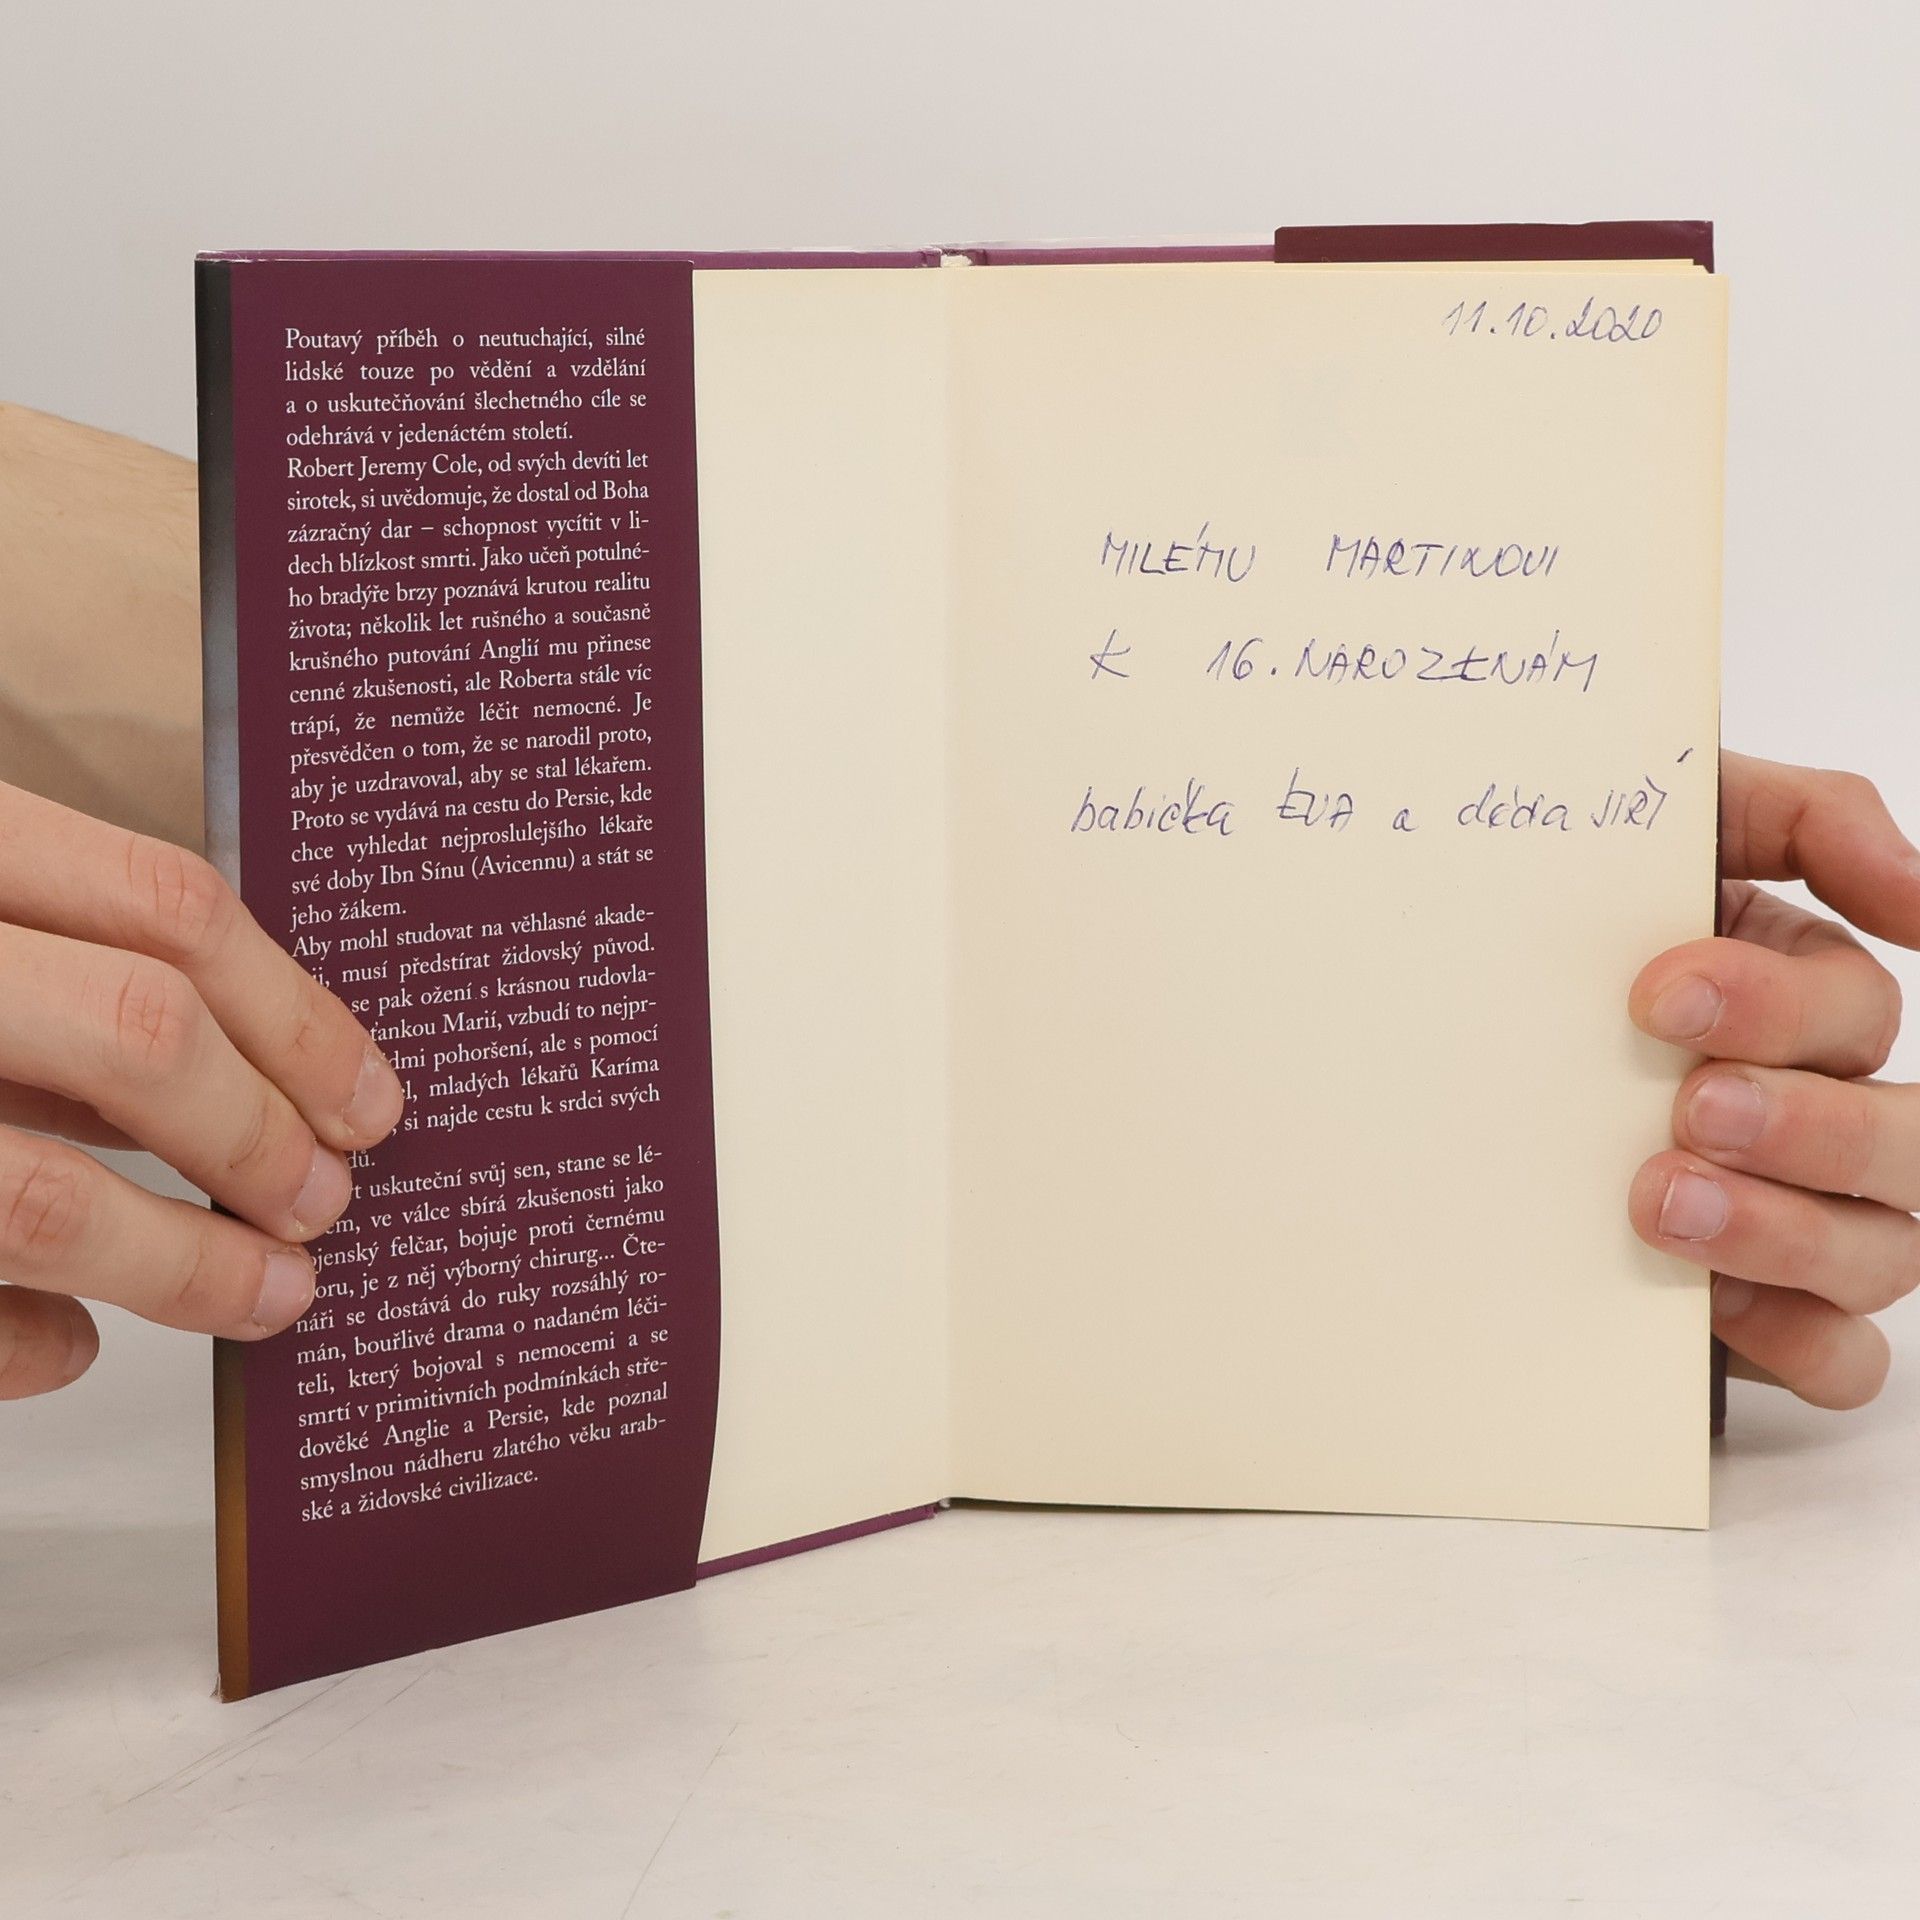 Poutavý příběh o neutuchající, silné
lidské touze po vědění a vzdělání
a o uskutečňování šlechetného cíle se
odehrává v jedenáctém století.
Robert Jeremy Cole, od svých devíti let
sirotek, si uvědomuje, že dostal od Boha
zázračný dar – schopnost vycítit v li-
dech blízkost smrti. Jako učeň potulné-
ho bradýře brzy poznává krutou realitu
života; několik let rušného a současně
krušného putování Anglií mu přinese
cenné zkušenosti, ale Roberta stále víc
trápí, že nemůže léčit nemocné. Je
přesvědčen o tom, že se narodil proto,
aby je uzdravoval, aby se stal lékařem.
Proto se vydává na cestu do Persie, kde
chce vyhledat nejproslulejšího lékaře
své doby Ibn Sínu (Avicennu) a stát se
jeho žákem.
Aby mohl studovat na věhlasné akade-
musí předstírat židovský původ.
se pak ožení s krásnou rudovla-
ťankou Marií, vzbudí to nejpr-
pohoršení, ale s pomocí
mladých lékařů Karíma
si najde cestu k srdci svých
dů.
uskuteční svůj sen, stane se lé-
ve válce sbírá zkušenosti jako
felčar, bojuje proti černému
je z něj výborný chirurg... Čte-
náři se dostává do ruky rozsáhlý ro-
mán, bouřlivé drama o nadaném léči-
teli, který bojoval s nemocemi a se
smrtí v primitivních podmínkách stře-
dověké Anglie a Persie, kde poznal
smyslnou nádheru zlatého věku arab-
ské a židovské civilizace.
11.10.2020
MILÉMU MARTINOVI
K 16. NAROZENÁM
babička EVA a děda JIŘÍ